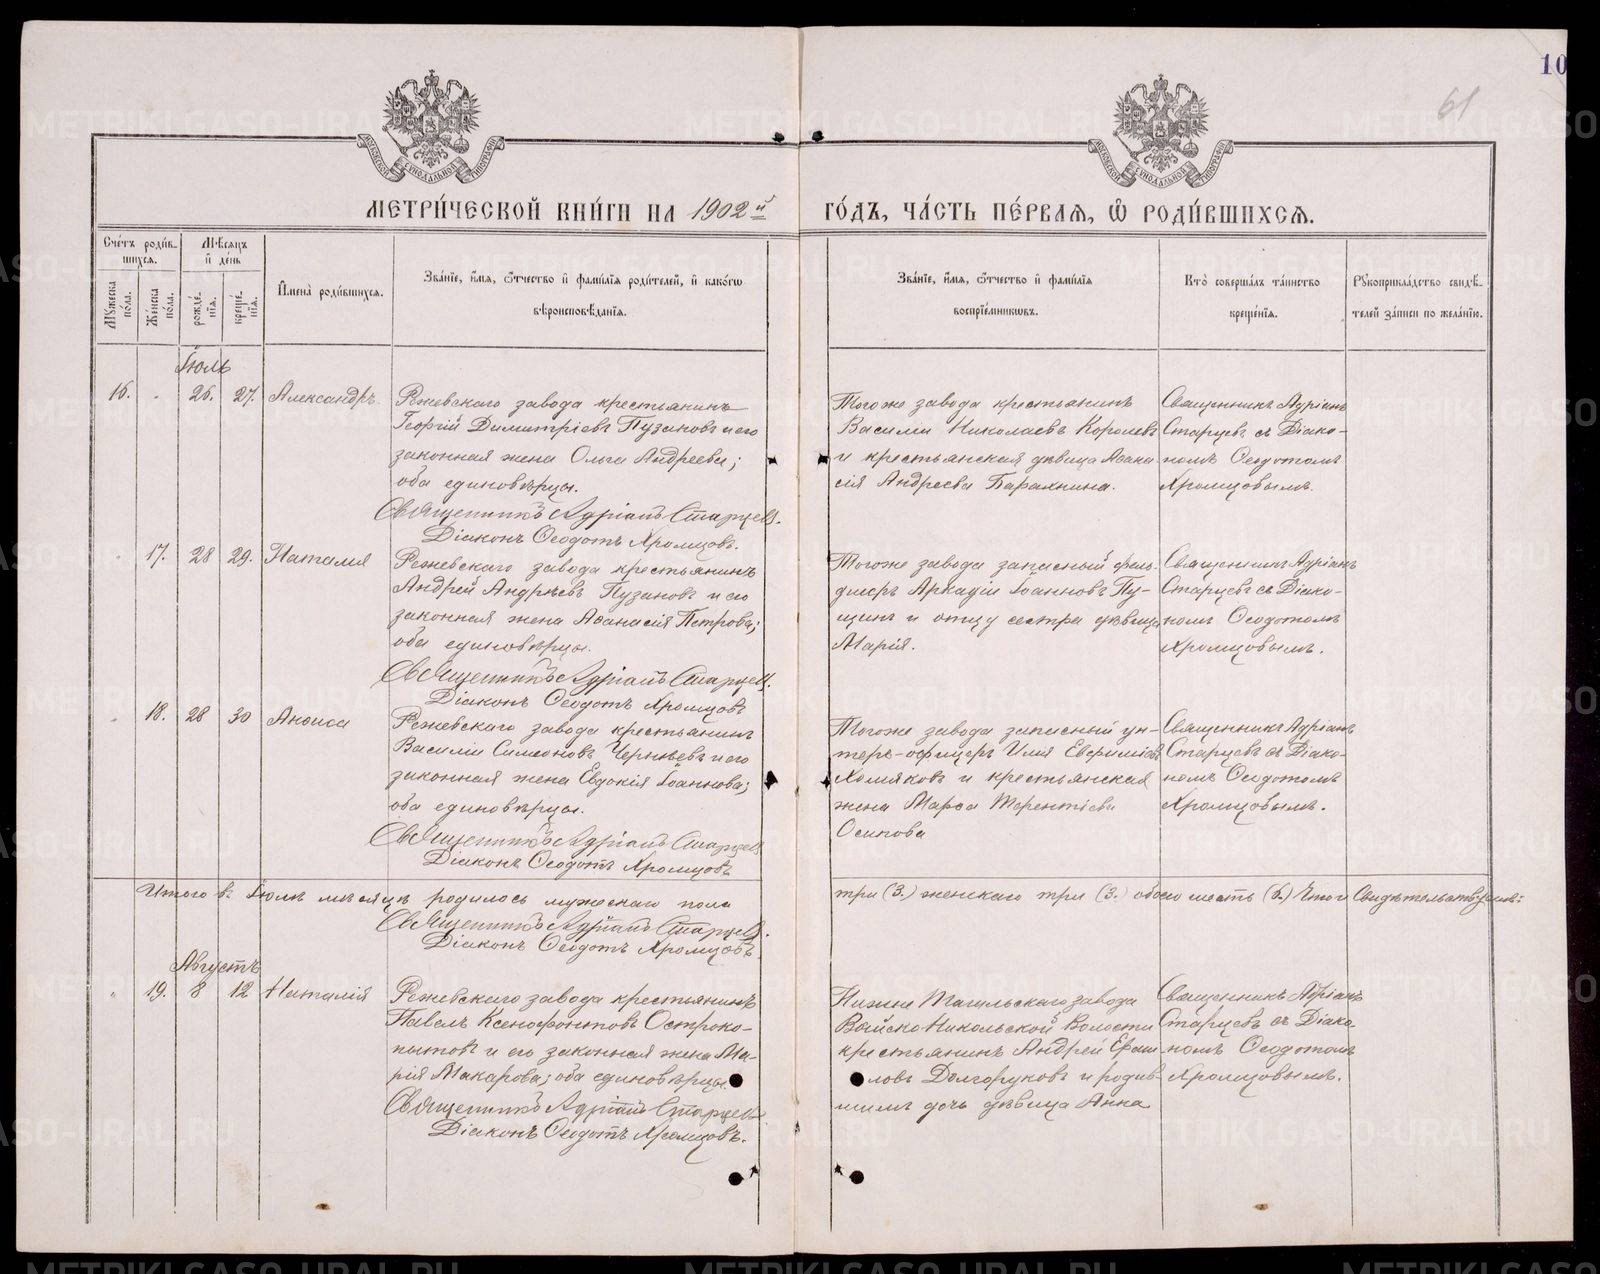 10
61
МЕТРИ́ЧЕСКОЙ КНИ́ГИ НА 1902й ГО́ДЪ, ЧА́СТЬ ПЕ́РВАЯ, Ѡ РОДИ́ВШИХСЯ.
Сче́тъ роди́в-
шихся.
Мѣ́сяцъ
и де́нь
Мꙋ́жеска по́ла.
Же́нска по́ла.
рожде́-
нїя.
креще́-
нїя.
И҆мена̀ роди́вшихся.
Зва́нїе, и҆́мя, ѻ҆́тчество и҆ фами́лїя роди́телей, и҆ како́гѡ
вѣроисповѣ́данїя.
Зва́нїе, и҆́мя, ѻ҆́тчество и҆ фами́лїя
воспрїе́мникѡвъ.
Кто̀ соверша́лъ та́инство
креще́нїя.
Рꙋкоприкла́дство свидѣ́-
телей за́писи по жела́нїю.
Іюль
16. 26. 27. Александръ.
Режевскаго завода крестьянинъ
Георгій Димитріевъ Пузановъ и его
законная жена Ольга Андреева;
оба единовѣрцы.
Священникъ Адріанъ Старцевъ.
Діаконъ Ѳеодотъ Хромцовъ.
Тогоже завода крестьянинъ
Василій Николаевъ Королевъ
и крестьянская дѣвица Аѳана
сія Андреева Барахнина.
Священникъ Адріанъ
Старцевъ съ Діако-
номъ Ѳеодотомъ
Хромцовымъ.
17. 28 29. Наталія
Режевскаго завода крестьянинъ
Андрей Андреевъ Пузановъ и его
законная жена Аѳанасія Петрова;
оба единовѣрцы.
Священникъ Адріанъ Старцевъ.
Діаконъ Ѳеодотъ Хромцовъ
Тогоже завода запасный фель-
дшеръ Аркадій Іоанновъ Пу-
щинъ и отцу сестра дѣвица
Марія.
Священникъ Адріанъ
Старцевъ съ Діако-
номъ Ѳеодотомъ
Хромцовымъ.
18. 28 30 Анѳиса
Режевскаго завода крестьянинъ
Василій Симеоновъ Черняевъ и его
законная жена Евдокія Іоаннова;
оба единовѣрцы.
Священникъ Адріанъ Старцевъ
Діаконъ Ѳеодотъ Хромцовъ
Тогоже завода запасный ун-
теръ-офицеръ Илія Евѳиміевъ
Хомяковъ и крестьянская
жена Марѳа Терентіева
Осипова
Священникъ Адріанъ
Старцевъ съ Діако-
номъ Ѳеодотомъ
Хромцовымъ.
Итого въ Іюлѣ мѣсяцѣ родилось мужескаго пола три (3.) женскаго три (3.) обоего шесть (6.) Что и Свидѣтельствуемъ:
Священникъ Адріанъ Старцевъ.
Діаконъ Ѳеодотъ Хромцовъ.
Августъ
19. 8 12 Наталія
Режевскаго завода крестьянинъ
Павелъ Ксенофонтовъ Остроко-
пытовъ и его законная жена Ма-
рія Макарова; оба единовѣрцы.
Священникъ Адріанъ Старцевъ
Діаконъ Ѳеодотъ Хромцовъ.
Нижне Тагильскаго завода
Выйско Никольской волости
крестьянинъ Андрей
ловъ Долгоруковъ и родив-
шимъ дочь дѣвица Анна
Священникъ Адріанъ
Старцевъ съ Діако-
номъ Ѳеодотомъ
Хромцовымъ.